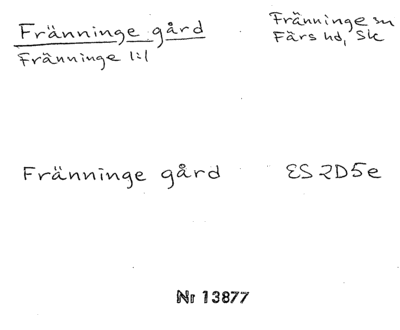 Fränninge gård
Fränninge 1:1
Fränninge sn
Färs hd, Sk
Fränninge gård
ES 2D5e
Nr 13877